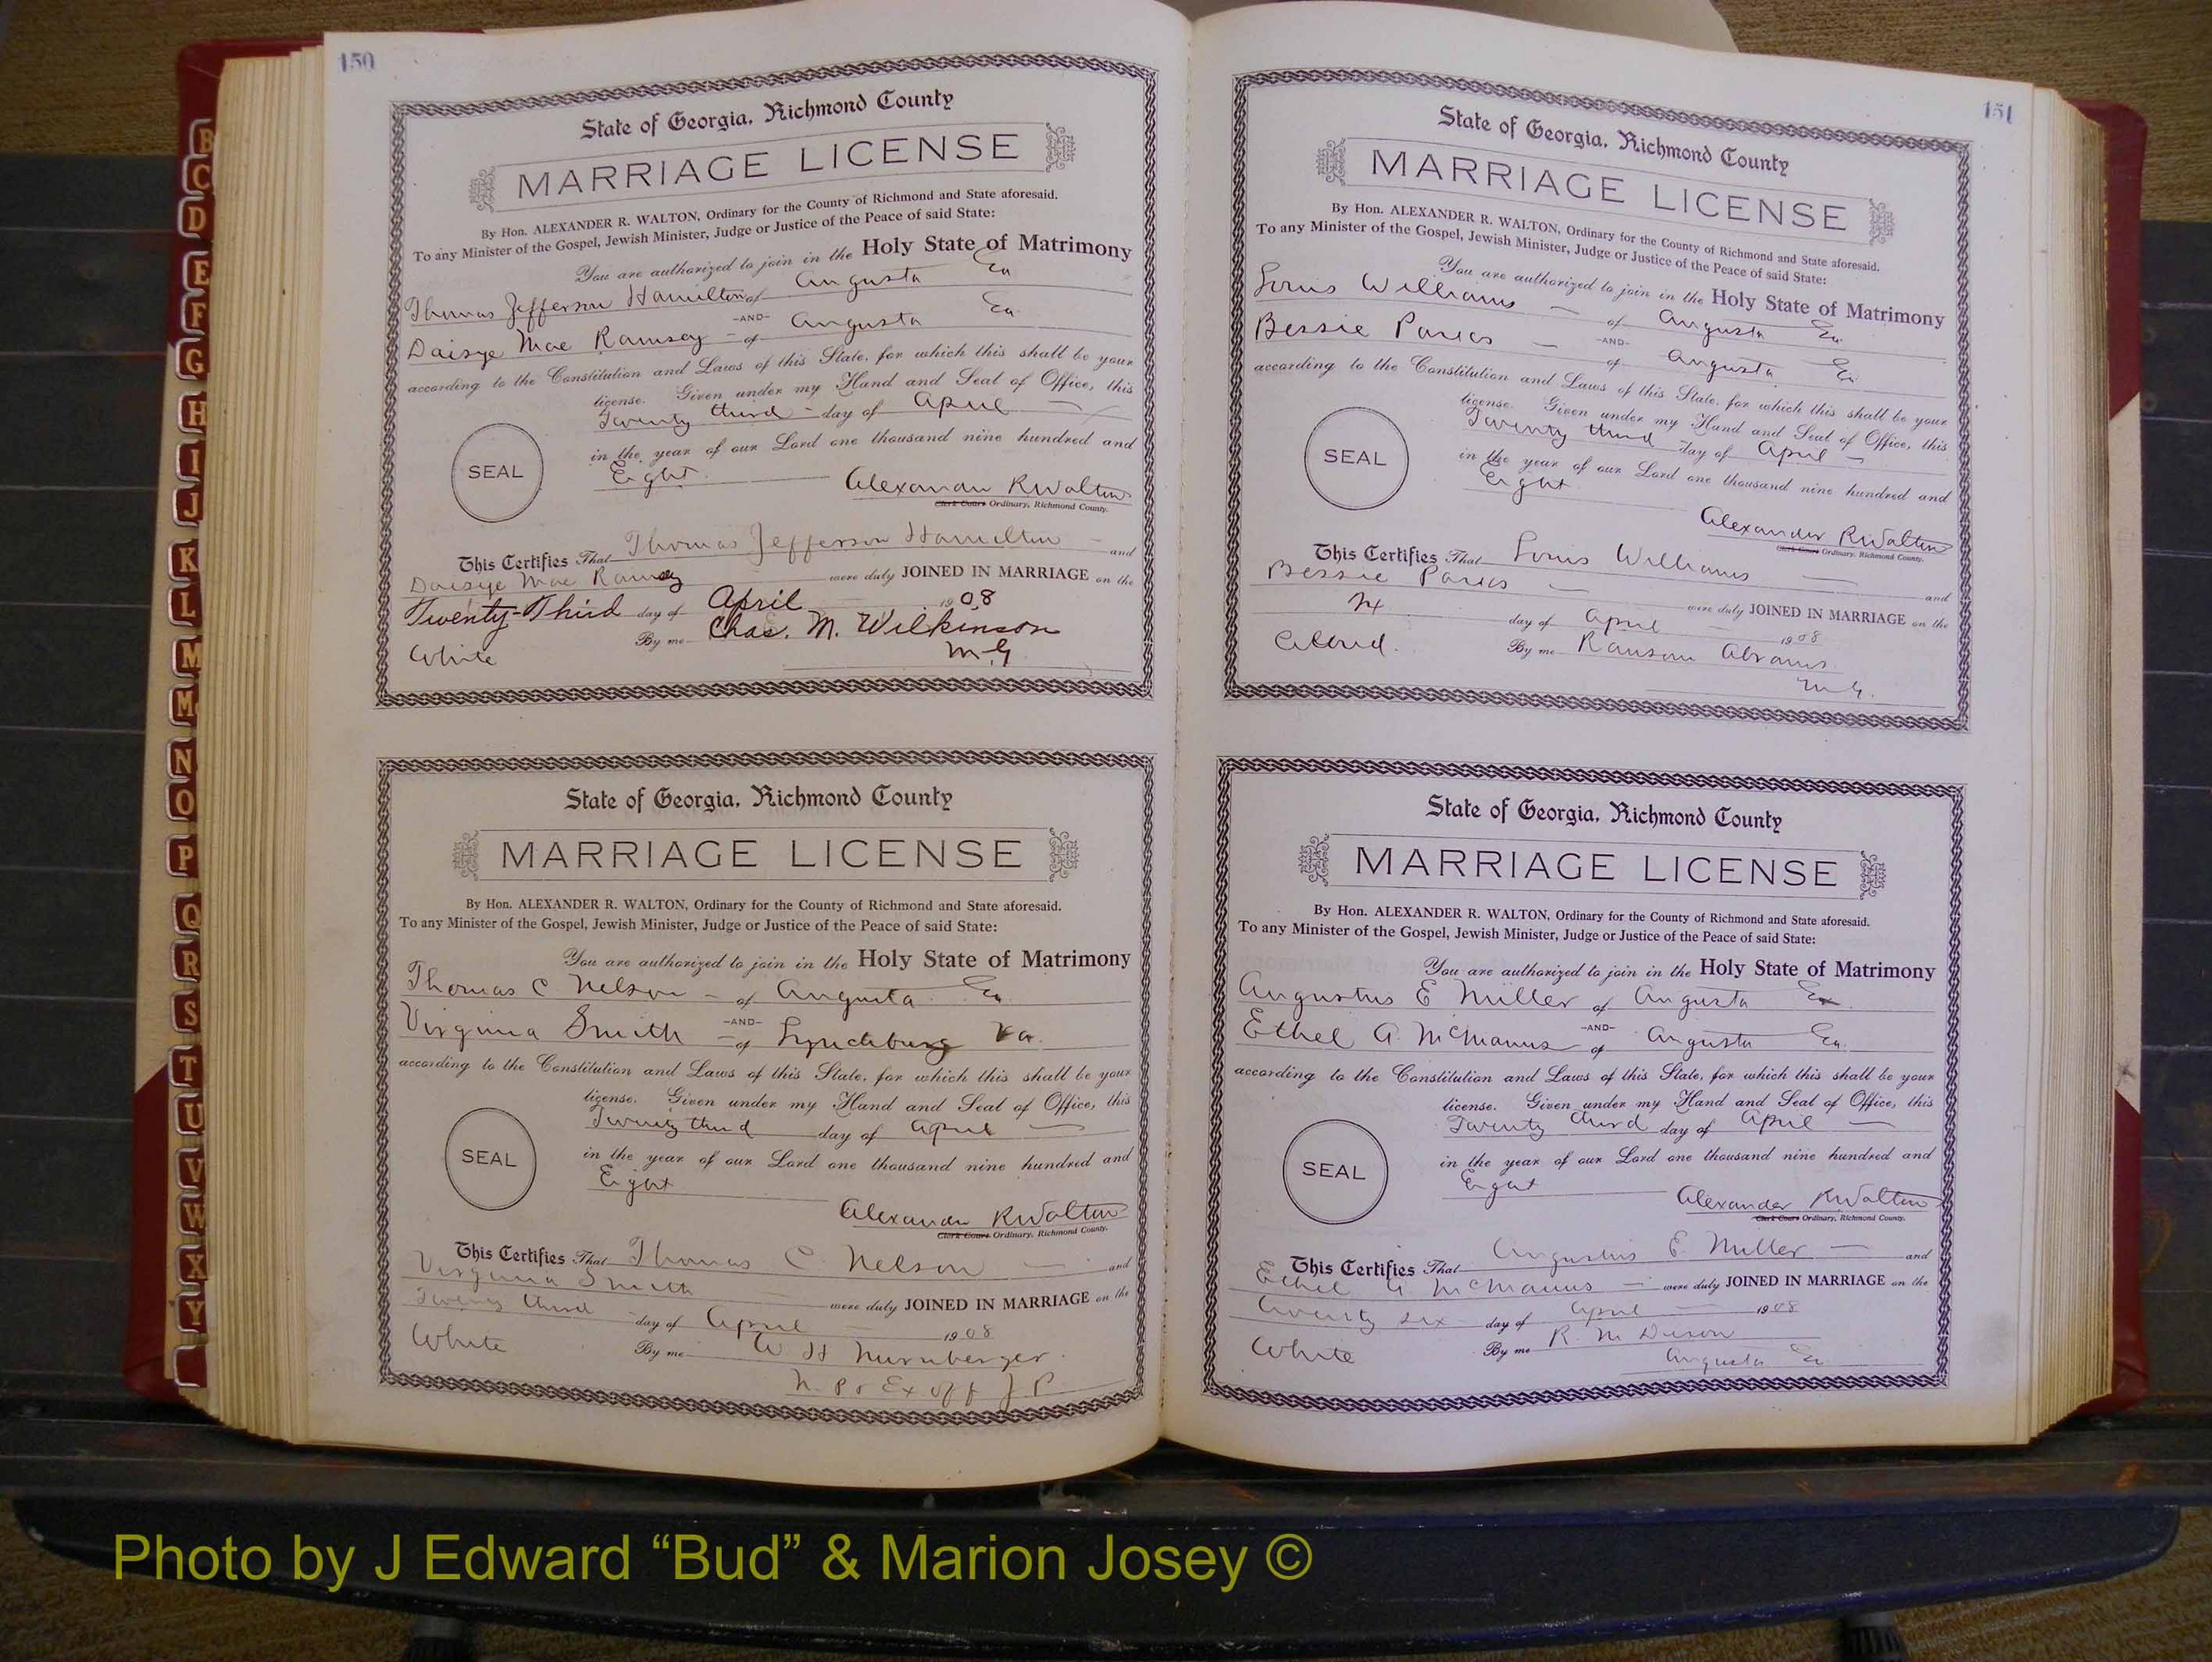 150
State of Georgia, Richmond County
MARRIAGE LICENSE
By Hon. ALEXANDER R. WALTON, Ordinary for the County of Richmond and State aforesaid.
To any Minister of the Gospel, Jewish Minister, Judge or Justice of the Peace of said State:
You are authorized to join in the Holy State of Matrimony
Thomas Jefferson Hamilton of Augusta Ga
-AND-
Daisye Mae Ramsey - of Augusta Ga
according to the Constitution and Laws of this State, for which this shall be your
license. Given under my Hand and Seal of Office, this
Twenty third - day of April
in the year of our Lord one thousand nine hundred and
SEAL
Eight.
Alexander R Walton
Clerk Court Ordinary, Richmond County.
This Certifies That Thomas Jefferson Hamilton - and
Daisye Mae Ramsey were duly JOINED IN MARRIAGE on the
Twenty-Third day of April 1908
By me Chas. M. Wilkinson
White M.G
State of Georgia, Richmond County
MARRIAGE LICENSE
By Hon. ALEXANDER R. WALTON, Ordinary for the County of Richmond and State aforesaid.
To any Minister of the Gospel, Jewish Minister, Judge or Justice of the Peace of said State:
You are authorized to join in the Holy State of Matrimony
Thomas C Nelson - of Augusta Ga
-AND-
Virginia Smith - of Lynchburg Va.
according to the Constitution and Laws of this State, for which this shall be your
license. Given under my Hand and Seal of Office, this
Twenty third day of April
in the year of our Lord one thousand nine hundred and
SEAL
Eight
Alexander R Walton
Clerk Court Ordinary, Richmond County.
This Certifies That Thomas C. Nelson and
Virginia Smith were duly JOINED IN MARRIAGE on the
Twenty third day of April 1908
White By me W H Nurnberger
N. P & Ex off J P
151
State of Georgia, Richmond County
MARRIAGE LICENSE
By Hon. ALEXANDER R. WALTON, Ordinary for the County of Richmond and State aforesaid.
To any Minister of the Gospel, Jewish Minister, Judge or Justice of the Peace of said State:
You are authorized to join in the Holy State of Matrimony
Louis Williams - of Augusta Ga
-AND-
Bessie Parks - of Augusta Ga
according to the Constitution and Laws of this State, for which this shall be your
license. Given under my Hand and Seal of Office, this
Twenty third day of April -
in the year of our Lord one thousand nine hundred and
SEAL
Eight
Alexander R Walton
Clerk Court Ordinary, Richmond County.
This Certifies That Louis Williams and
Bessie Parks - were duly JOINED IN MARRIAGE on the
day of April 1908
By me Ransom Abrams
M.G.
State of Georgia, Richmond County
MARRIAGE LICENSE
By Hon. ALEXANDER R. WALTON, Ordinary for the County of Richmond and State aforesaid.
To any Minister of the Gospel, Jewish Minister, Judge or Justice of the Peace of said State:
You are authorized to join in the Holy State of Matrimony
Augustus E Miller of Augusta Ga
-AND-
Ethel A. McManus of Augusta Ga.
according to the Constitution and Laws of this State, for which this shall be your
license. Given under my Hand and Seal of Office, this
Twenty third day of April
in the year of our Lord one thousand nine hundred and
SEAL
Eight
Alexander R Walton
Clerk Court Ordinary, Richmond County.
This Certifies That Augustus E. Miller and
Ethel A McManus - were duly JOINED IN MARRIAGE on the
twenty six day of April 1908
White By me R. M Dixon
Augusta Ga
B
C
D
E
F
G
H
I
J
K
L
M
Mc
N
O
P
Q
R
S
T
U
V
W
X
Y
Photo by J Edward “Bud” & Marion Josey ©